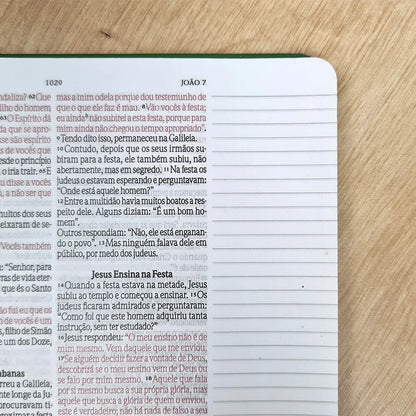 1029
JOÃO 7
ndaliza? 62 Que
filho do homem
63 O Espírito dá
da que se apro-
sse são espírito
desde o princípio
o iria trair. E
u disse a vocês
, a não ser que
uitos dos seus
eixaram de se-
Vocês também
: "Senhor, para
ras de vida eter-
que és o Santo
ão fui eu que os
de vocês é um
, filho de Simão
um dos Doze,
banas
rreu a Galileia,
nte longe da Ju-
procuravam ti-
mas a mim odeia porque dou testemunho de
que o que ele faz é mau. 8 Vão vocês à festa;
eu ainda b não subirei a esta festa, porque para
mim ainda não chegou o tempo apropriado".
9 Tendo dito isso, permaneceu na Galileia.
10 Contudo, depois que os seus irmãos su-
biram para a festa, ele também subiu, não
abertamente, mas em segredo. 11 Na festa os
judeus o estavam esperando e perguntavam:
"Onde está aquele homem?"
12 Entre a multidão havia muitos boatos a res-
peito dele. Alguns diziam: "É um bom ho-
mem".
Outros respondiam: "Não, ele está enganan-
do o povo". 13 Mas ninguém falava dele em
público, por medo dos judeus.
Jesus Ensina na Festa
14 Quando a festa estava na metade, Jesus
subiu ao templo e começou a ensinar. 15 Os
judeus ficaram admirados e perguntaram:
"Como foi que este homem adquiriu tanta
instrução, sem ter estudado?"
16 Jesus respondeu: "O meu ensino não é de
mim mesmo. Vem daquele que me enviou.
17 Se alguém decidir fazer a vontade de Deus,
descobrirá se o meu ensino vem de Deus ou
se falo por mim mesmo. 18 Aquele que fala
por si mesmo busca a sua própria glória, mas
aquele que busca a glória de quem o enviou,
este é verdadeiro; não há nada de falso a seu